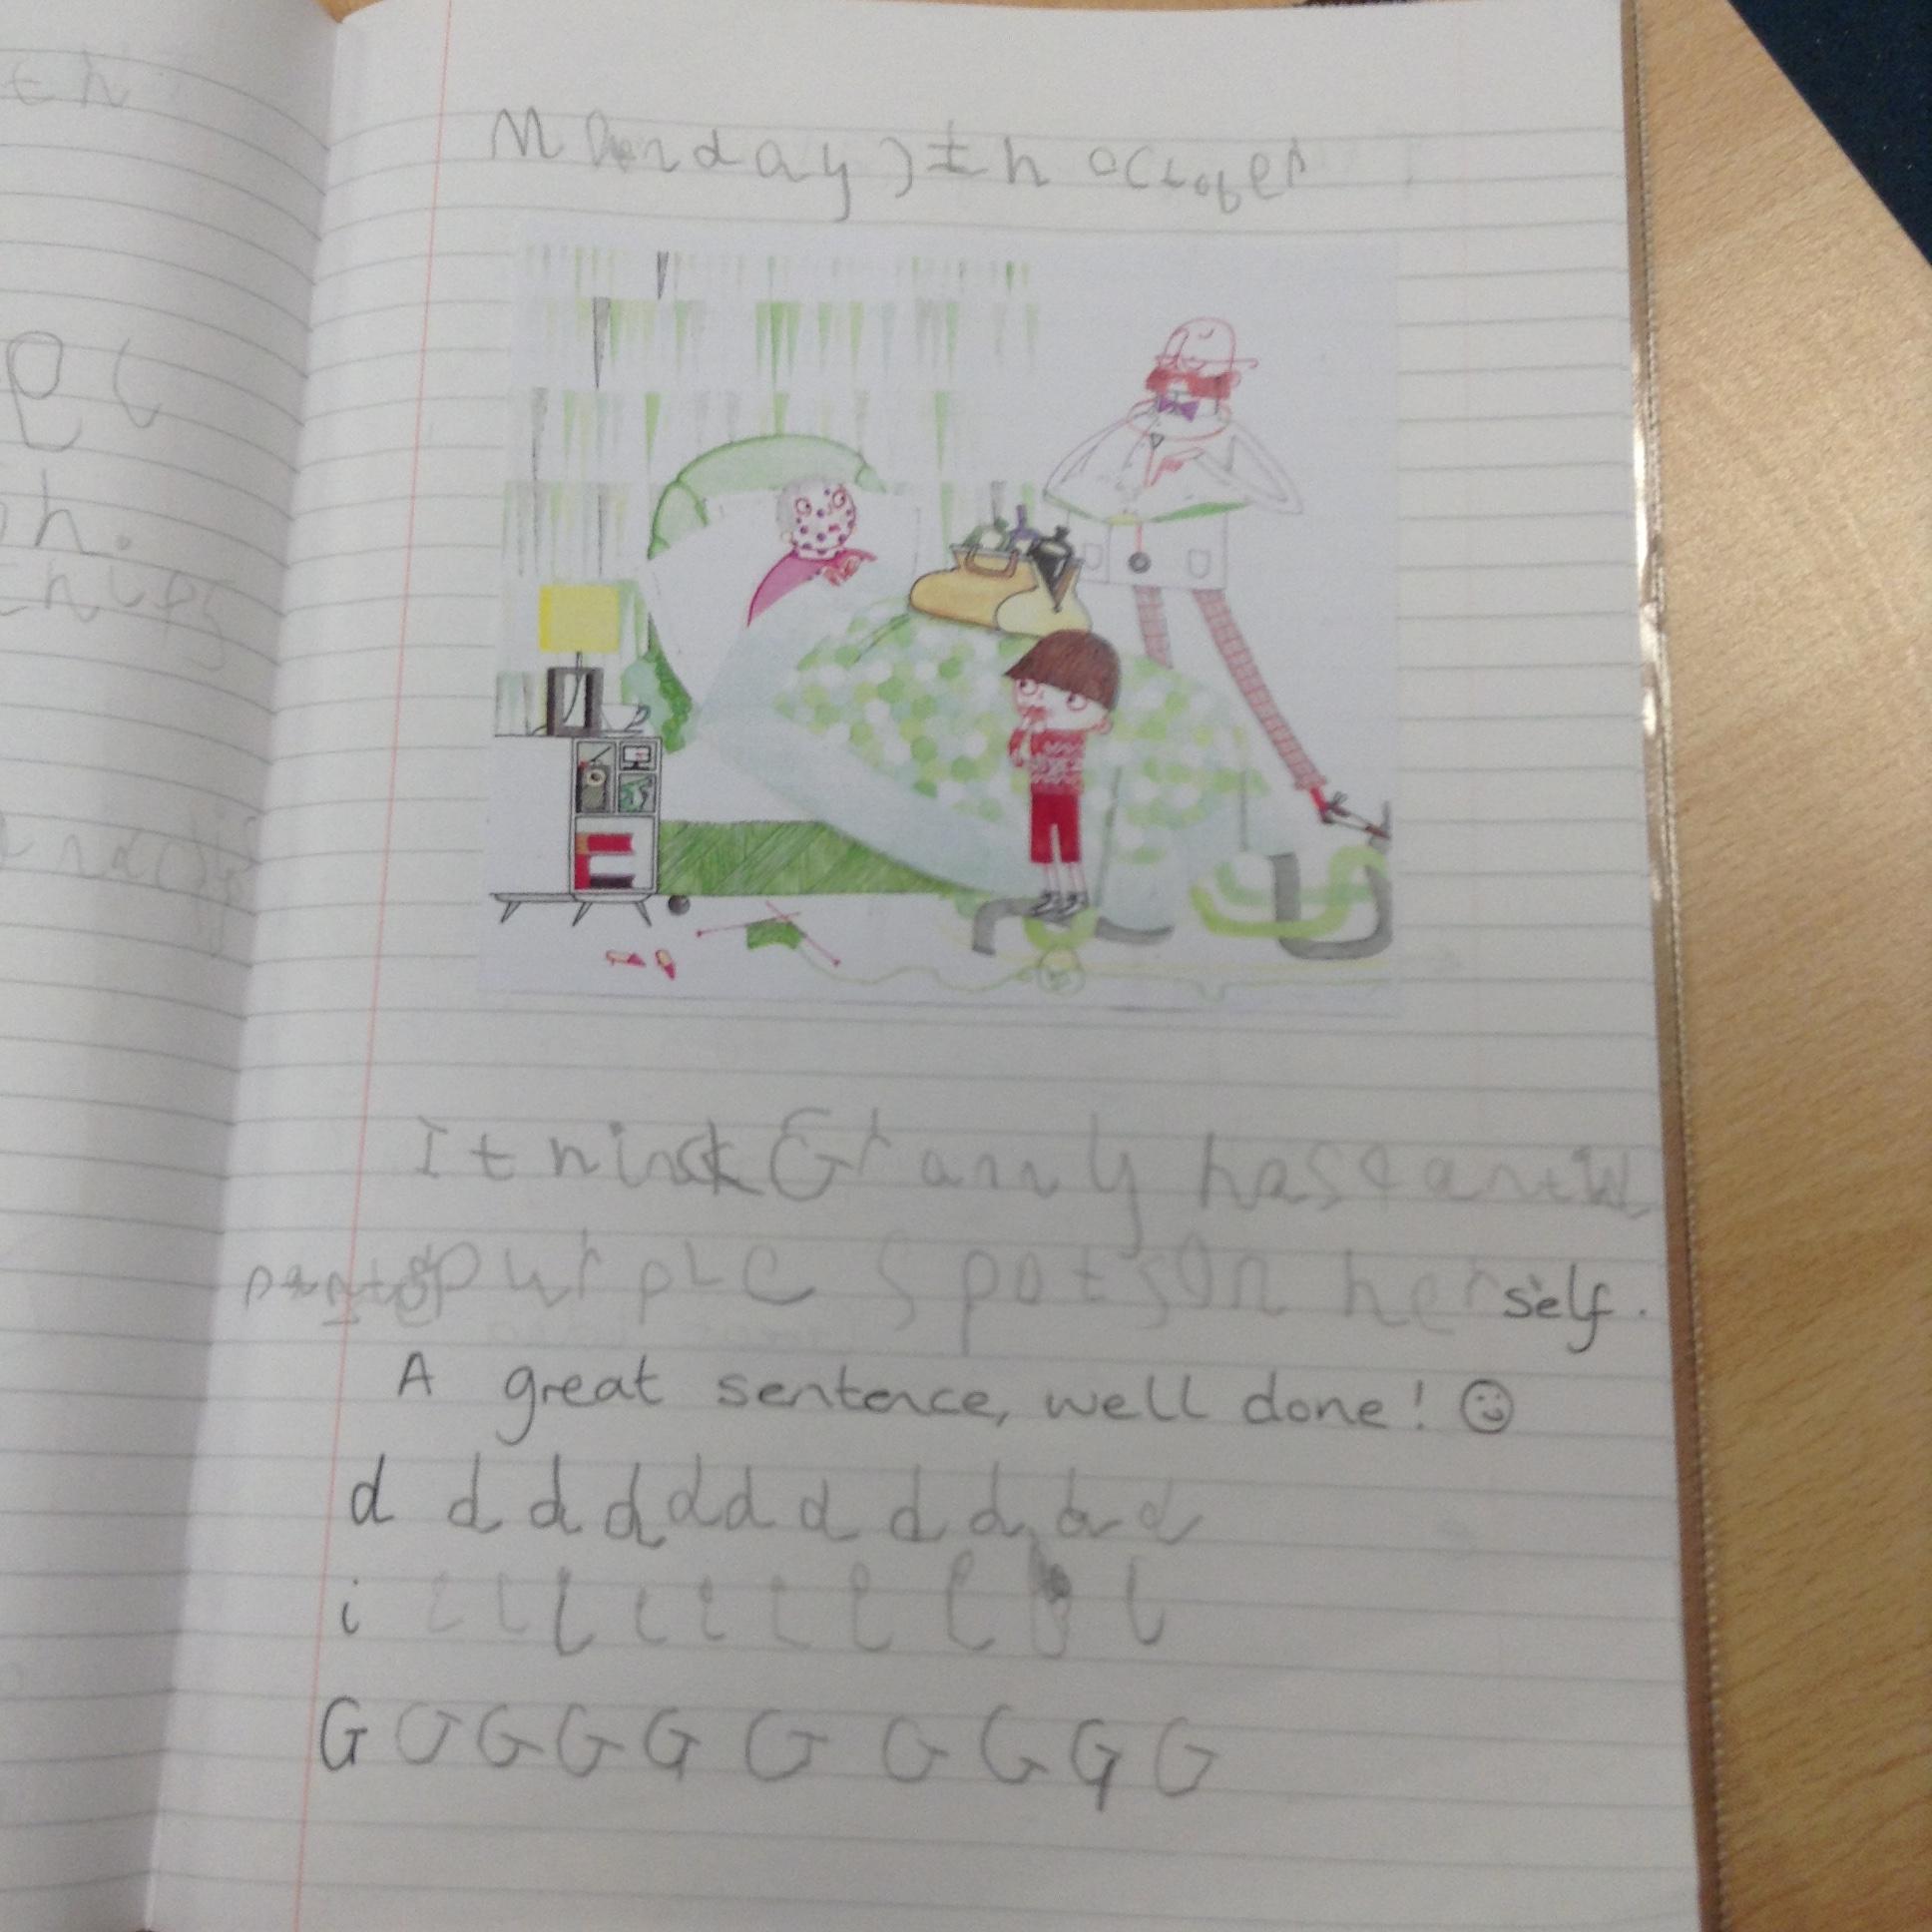 th
Monday 7th october
oh.
chips
I think Granny has
purple spots on herself.
A great sentence, well done! ☺
d d d d d d d d d d d
i i i i i i i i i i i
G G G G G G G G G G